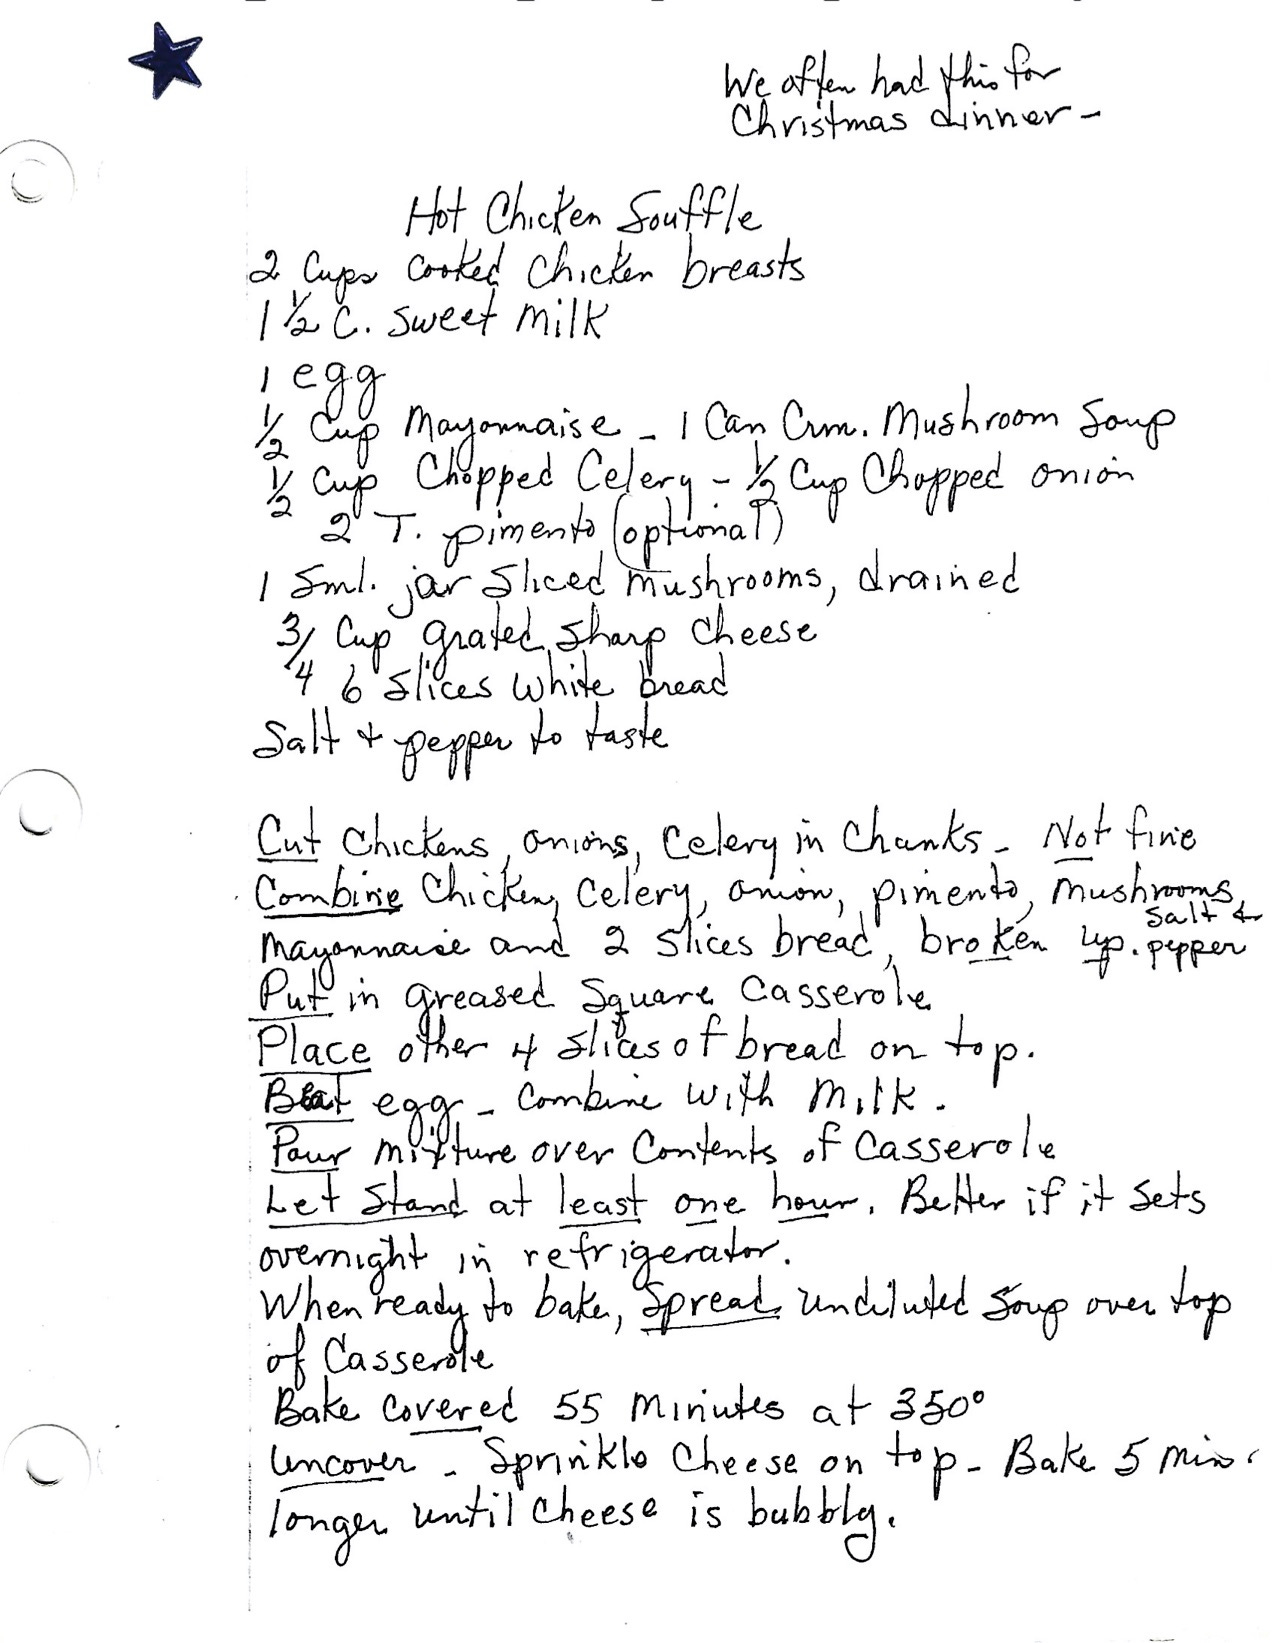 We often had this for
Christmas dinner -
Hot Chicken Souffle
2 Cups cooked chicken breasts
1 1/2 C. sweet milk
1 egg
1/2 Cup Mayonnaise - 1 Can Crm. Mushroom Soup
1/2 Cup Chopped Celery - 1/2 Cup Chopped onion
2 T. pimento (optional)
1 Sml. jar sliced mushrooms, drained
3/4 Cup grated sharp cheese
6 slices white bread
Salt + pepper to taste
Cut chickens, onions, celery in chunks - Not fine
Combine Chicken, celery, onion, pimento, mushrooms,
mayonnaise and 2 slices bread, broken up. Salt + pepper
Put in greased square casserole
Place other 4 slices of bread on top.
Beat egg - combine with milk.
Pour mixture over contents of casserole
Let Stand at least one hour. Better if it sets
overnight in refrigerator.
When ready to bake, spread undiluted soup over top
of Casserole
Bake covered 55 minutes at 350°
Uncover - Sprinkle cheese on top - Bake 5 min.
longer until cheese is bubbly.